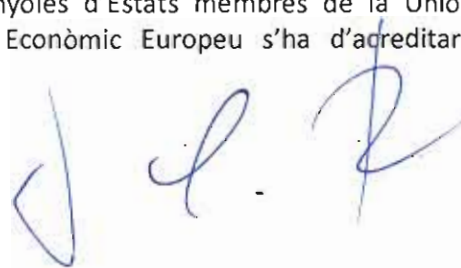 nyoles d'Estats membres de la Unió
Econòmic Europeu s'ha d'acreditar